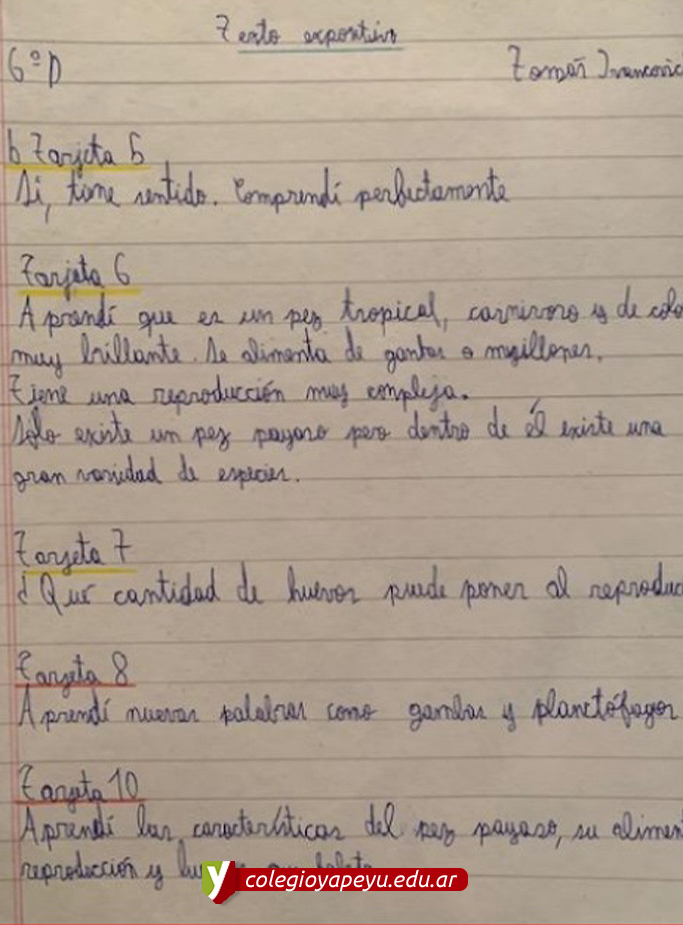 Texto expositivo
6º D
Tomás Ivancovic
b Tarjeta 5
Si, tiene sentido. Comprendí perfectamente
Tarjeta 6
Aprendí que es un pez tropical, carnivoro y de colo
muy brillante. Se alimenta de gambas o mejillones.
Tiene una reproducción muy compleja.
Solo existe un pez payaso pero dentro de él existe una
gran variedad de especies.
Tarjeta 7
¿Qué cantidad de huevos puede poner al reproduc
Tarjeta 8
Aprendí nuevas palabras como gambas y planctófagos
Tarjeta 10
Aprendí las características del pez payaso, su alimen
reproducción y
colegioyapeyu.edu.ar